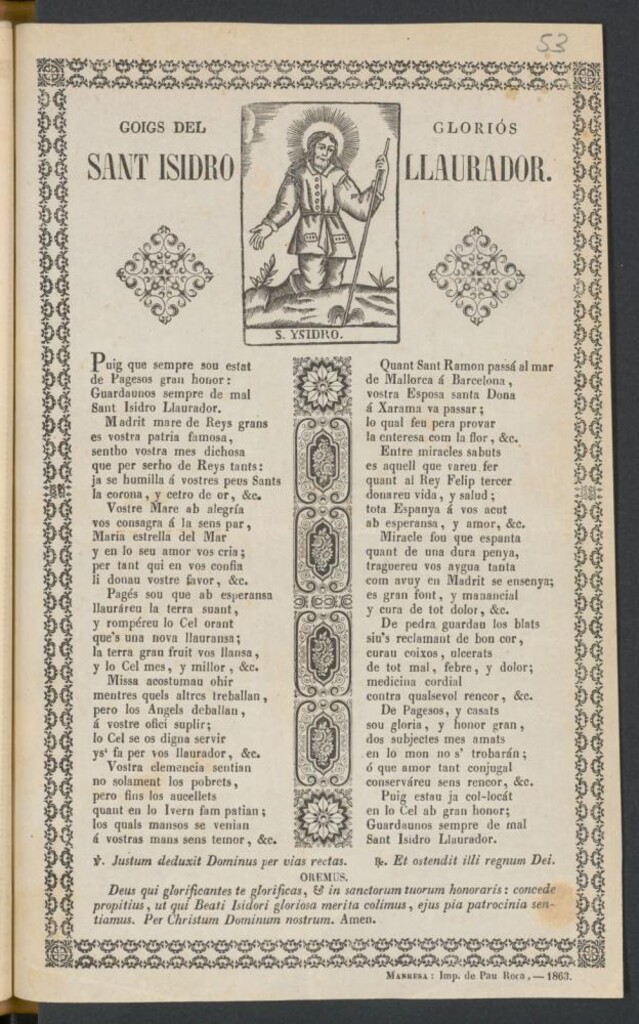 53
GOIGS DEL GLORIÓS
SANT ISIDRO LLAURADOR.
S. YSIDRO.
Puig que sempre sou estat
de Pagesos gran honor:
Guardaunos sempre de mal
Sant Isidro Llaurador.
Madrit mare de Reys grans
es vostra patria famosa,
sentho vostra mes dichosa
que per serho de Reys tants:
ja se humilla á vostres peus Sants
la corona, y cetro de or, &c.
Vostre Mare ab alegría
vos consagra á la sens par,
Maria estrella del Mar
y en lo seu amor vos cria;
per tant qui en vos confia
li donau vostre favor, &c.
Pagés sou que ab esperansa
llauráreu la terra suant,
y rompéreu lo Cel orant
que's una nova llauransa;
la terra gran fruit vos llansa,
y lo Cel mes, y millor, &c.
Missa acostumau ohir
mentres quels altres treballan,
pero los Angels deballan,
á vostre ofici suplir;
lo Cel se os digna servir
ys' fa per vos llaurador, &c.
Vostra clemencia sentian
no solament los pobrets,
pero fins los aucellets
quant en lo Ivern fam patian;
los quals mansos se venian
á vostras mans sens temor, &c.
Quant Sant Ramon passá al mar
de Mallorca á Barcelona,
vostra Esposa santa Dona
á Xarama va passar;
lo qual feu pera provar
la enteresa com la flor, &c.
Entre miracles sabuts
es aquell que vareu fer
quant al Rey Felip tercer
donareu vida, y salud;
tota Espanya á vos acut
ab esperansa, y amor, &c.
Miracle fou que espanta
quant de una dura penya,
traguereu vos aygua tanta
com avuy en Madrit se ensenya;
es gran font, y manancial
y cura de tot dolor, &c.
De pedra guardau los blats
siu's reclamant de bon cor,
curau coixos, ulcerats
de tot mal, febre, y dolor;
medicina cordial
contra qualsevol rencor, &c.
De Pagesos, y casats
sou gloria, y honor gran,
dos subjectes mes amats
en lo mon no s' trobarán;
ó que amor tant conjugal
conserváreu sens rencor, &c.
Puig estau ja col-locát
en lo Cel ab gran honor;
Guardaunos sempre de mal
Sant Isidro Llaurador.
℣. Justum deduxit Dominus per vias rectas. ℟. Et ostendit illi regnum Dei.
OREMUS.
Deus qui glorificantes te glorificas, & in sanctorum tuorum honoraris: concede
propitius, ut qui Beati Isidori gloriosa merita colimus, ejus pia patrocinia sen-
tiamus. Per Christum Dominum nostrum. Amen.
MANRESA: Imp. de Pau Roca, — 1863.